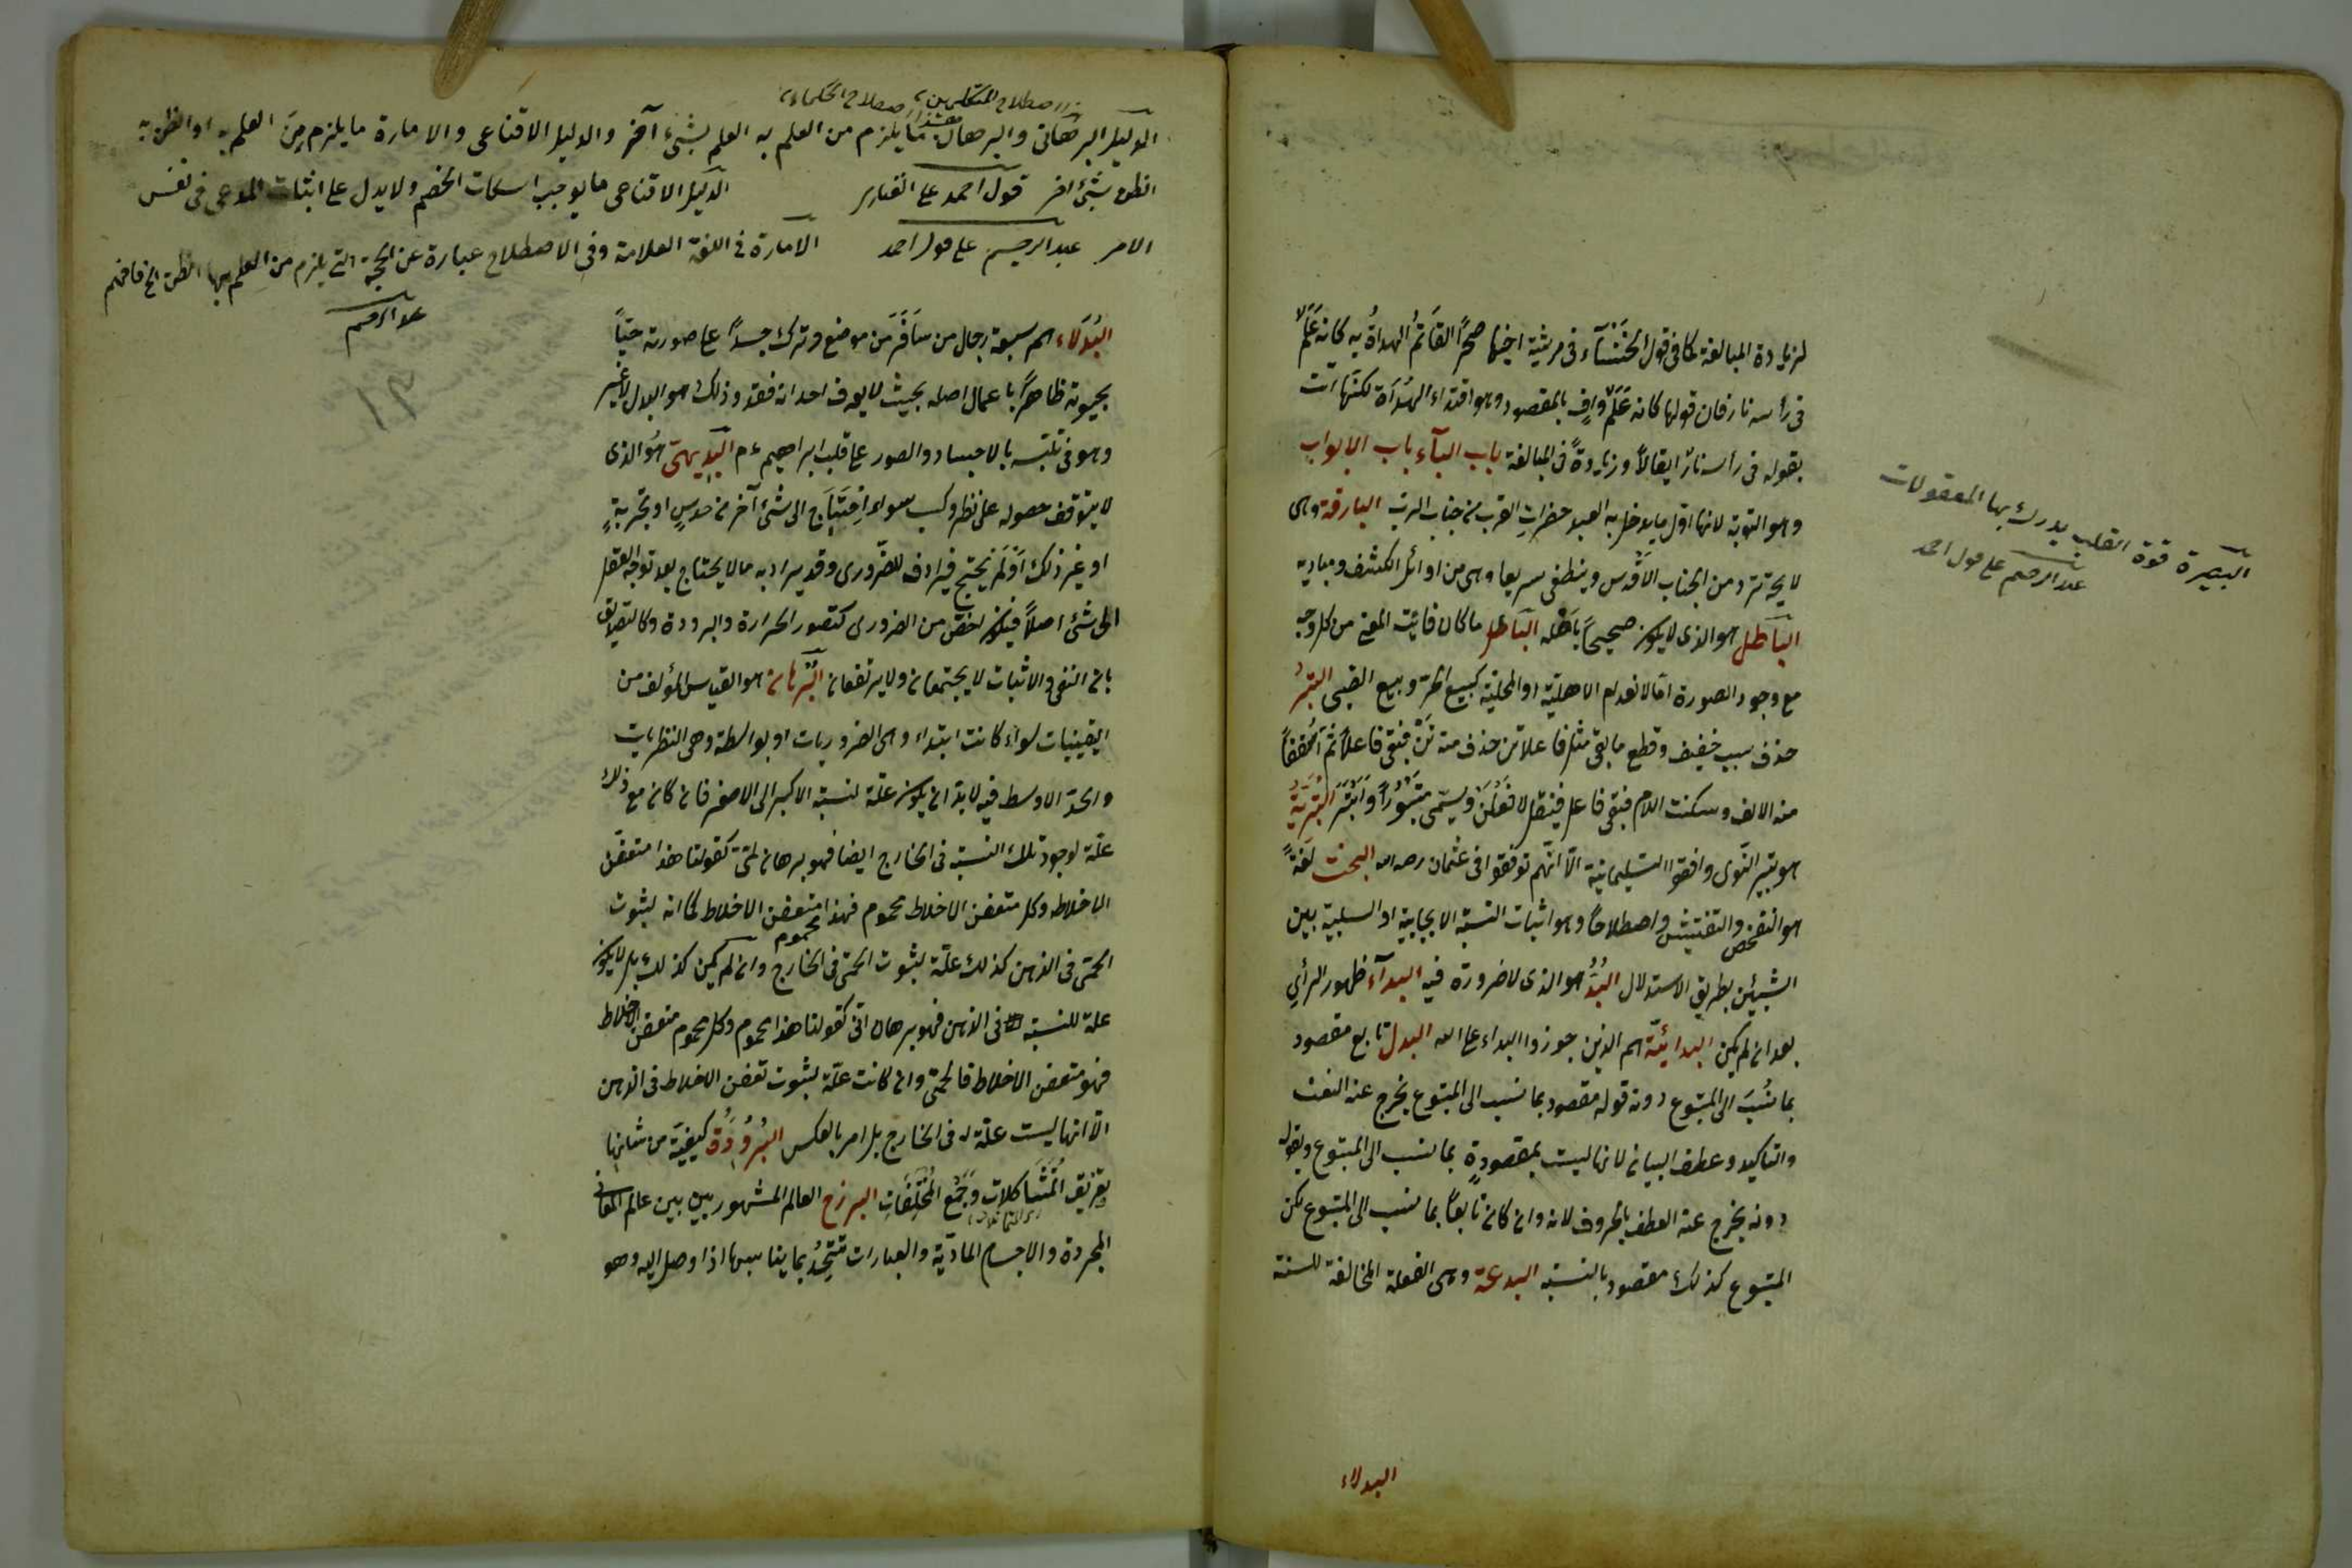 لزيادة المبالغة كما فى قول الخَنْسَآء فى مرثية اخيها صخرًا لتَأتَمُّ الهداةُ به كانه عَلَمٌ
فى رأسه نار فان قولها كانه عَلَمٌ وافٍ بالمقصود وهو اقتداء الهُدَاة لكنها اتت
بقوله فى رأسه نارٌ ايغالاً وزيادةً فى المبالغة باب البآء باب الابواب
وهو التوبة لانها اوّل ما يدخل به العبد حضراتِ القرب من جناب الرب البارقة وهى
لايحة ترد من الجناب الاقْدس وينطفى سريعا وهى من اوائل الكشف ومباديه
البَاطَل هو الذى لا يكون صحيحاً باَصْله البَاطل ما كان فائِت المعنى من كل وجه
مع وجود الصورة امّا لانعدام الاهليّة او المحليّة كبيع الحرّ وبيع الصّبى البَتْرُ
حذف سبب خفيف وقطع ما بقى مثل فاعلاتن حذف منه تن فبقى فاعلا ثم اُسْقِط
منه الالف وسكنت اللام فبقى فاعل فينقل الى فَعْلُن ويسمّى مَبْتُوْراً وَاَبْتَرَ البُتْرِيَّةُ
هو بتير النّوى وافقوا السّليمانيّة الّا انّهم توقفوا فى عثمان رضه الله البحث لغَةً
هو التفحص والتفتيش واصطلاحًا وهو اثبات النسبة الايجابية او السلبية بين
الشيئين بطريق الاستدلال البُدُّ هو الذى لا ضرورة فيه البدآء ظهور الرأي
بعد ان لم يكن البدائيّة هم الذين جوزوا البداء على الله البدل تابع مقصود
بما نُسِبَ الى المتبوع دونه قوله مقصود بما نسب الى المتبوع يخرج عنه النعت
والتاكيد وعطف البيان لانها ليست بمقصودةٍ بما نسب الى المتبوع وبقوله
دونه يخرج عنه العطف بالحروف لانه وان كان تابعاً بما نسب الى المتبوع لكن
المتبوع كذلك مقصود بالنسبة البدعة وهى الفعلة المخالفة للسنة
البدلاء
البصيرة قوة القلب يدرك بها المعقولات
عبد الرحيم على قول احمد
اصطلاح المتكلمين اصطلاح الحكماء
الدليل البرهانى والبرهان ما يلزم من العلم به العلم بشىء آخر والدليل الاقناعى والامارة ما يلزم مِنَ العلم به او الظن به
الظن بشىء اخر قول احمد على الفنارى الدليل الاقناعى ما يوجب اسكات الخصم ولا يدل على اثبات المدعى فى نفس
الامر عبد الرحيم على قول احمد الامارة فى اللغة العلامة وفى الاصطلاح عبارة عن الحجة التى يلزم من العلم بها الظن الخ فافهم
عبد الرحيم
البُدَلَاء هم سبعة رجال من سَافَرَ مَن موضع وترك جسدًا على صورته حيّاً
بحيوته ظاهرًا باعمال اصله بحيث لا يعرف احد انه فقد وذلك هو البدل لا غير
وهو فى تلبّسه بالاجساد والصور على قلب ابراهيم ءم البديهىّ هُوَ الذى
لا يتوقف حصوله على نظر وكسب سواء اِحْتَاجَ الى شىء آخر من حدسٍ او تجربةٍ
او غير ذلك اَوْلَمْ يحتج فيرادف للضّرورى وقد يراد به ما لا يحتاج بعد توجّه العقل
الى شىء اصلاً فيكون اخصّ من الضرورى كتصور الحرارة والبرودة وكالتصديق
بان النفى والاثبات لا يجتمعان ولا يرتفعان البُرْهان هو القياس المؤلف من
اليقينيات سواء كانت ابتداء وهى الضروريات او بواسطة وهى النظريات
والحدّ الاوسط فيه لابدّ ان يكون علّة لنسبة الاكبر الى الاصغر فان كان مع ذلك
علّة لوجود تلك النسبة فى الخارج ايضا فهو برهان لمّىّ كقولنا هذا متعفّن
الاخلاط وكل متعفن الاخلاط محموم فهذا محموم متعفن الاخلاط كما انه لثبوت
الحمّى فى الذهن كذلك علّة لثبوت الحمّى فى الخارج وان لم يكن كذلك بل لا يكون
علة للنسبة الا فى الذهن فهو برهان انّى كقولنا هذا محموم وكل محموم متعفن الاخلاط
فهو متعفن الاخلاط فالحمّى وان كانت علّة لثبوت تعفن الاخلاط فى الذهن
الّا انها ليست علّة له فى الخارج بل امر بالعكس البُرُوُدَةُ كيفيّة من شانها
تفريق المُتَشَاكلات وَجَمْع المُخْتَلَفَاتِ البرزخ العالم المشهور بين بين عالم المعانى
المجردة والاجسام الماديّة والعبارات تتّحِدُ بما يناسبها اذا وصل اليه وهو